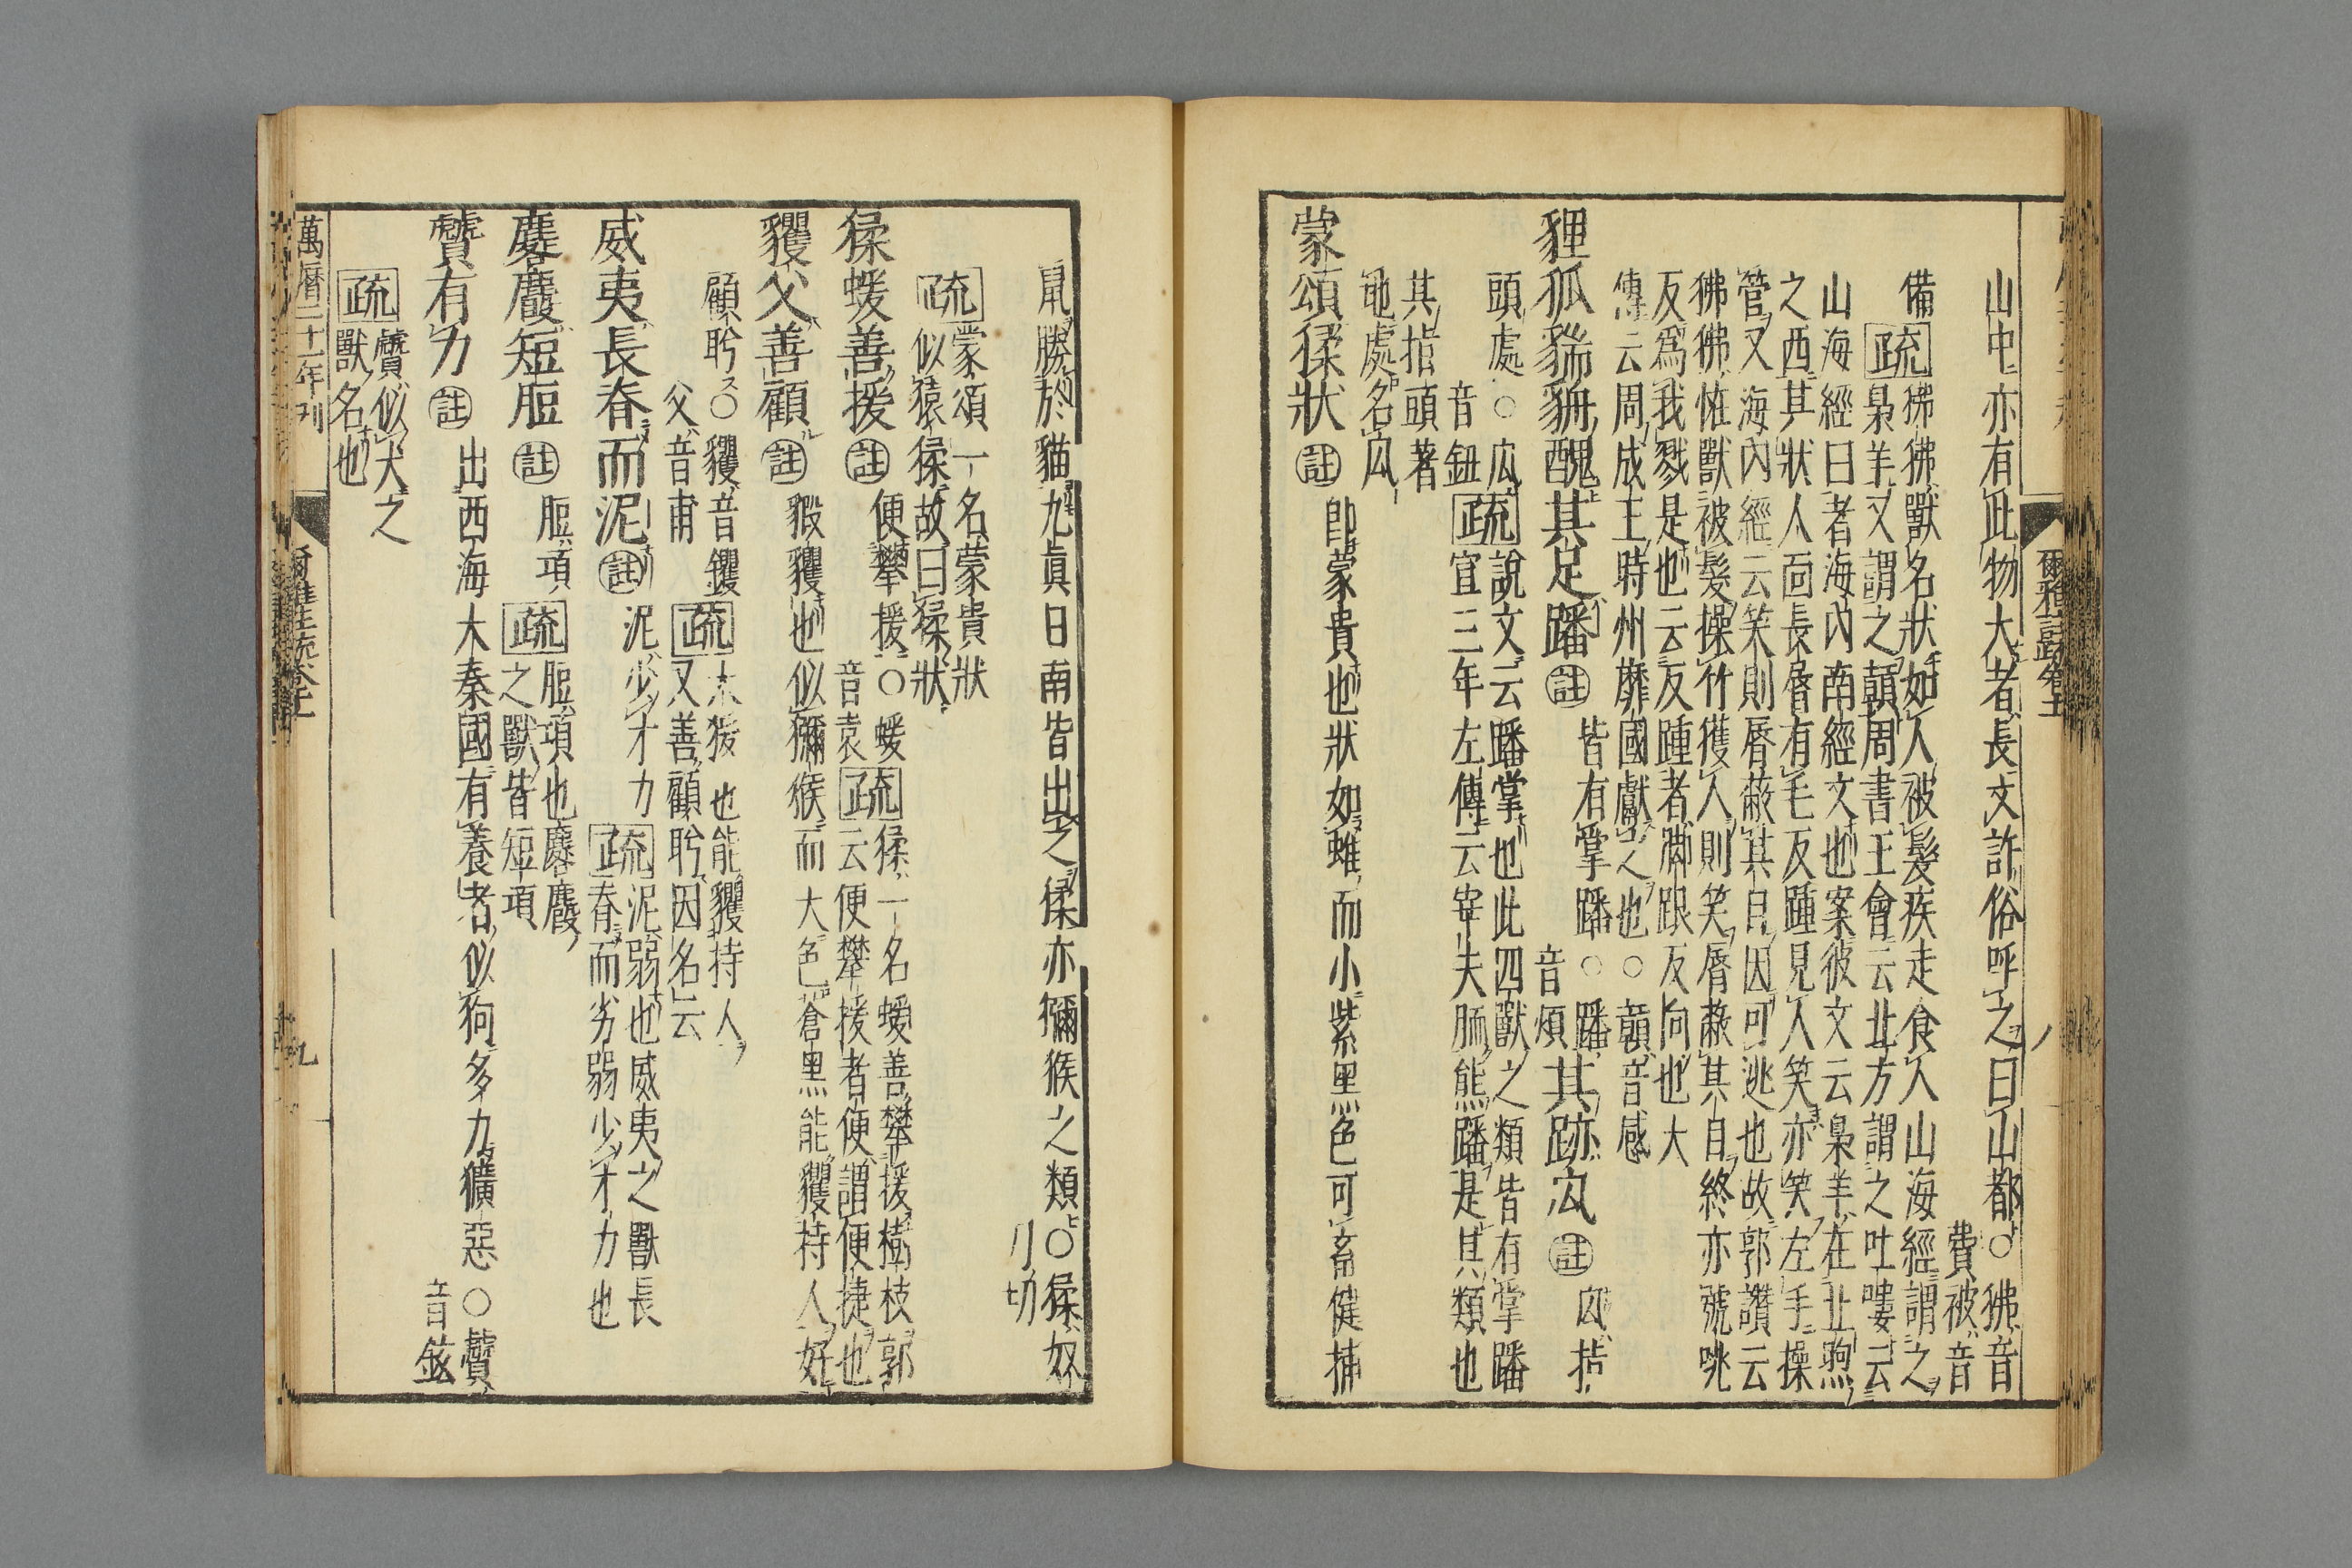 爾雅註疏卷十
山中亦有此物大者長丈許俗呼之曰山都○狒音
費被音
備疏狒狒獸名狀如人被髮疾走食人山海經謂之
梟羊又謂之顤周書王會云北方謂之吐嘍云
山海經曰者海內南經文也案彼文云梟羊在北朐
之西其狀人面長脣有毛反踵見人笑亦笑左手操
管又海內經云笑則脣蔽其目因可逃也故郭讚云
狒狒惟獸被髮操竹獲人則笑脣蔽其目終亦號咷
反爲我戮是也云反踵者郭跟反向也大
傳云周成王時州靡國獻之也○顤音感
貍狐貒貈醜其足蹯註皆有掌蹯○蹯
音煩其跡厹註厹指
頭處○厹
音鈕疏說文云蹯掌也此四獸之類皆有掌蹯
宣三年左傳云宰夫胹熊蹯是其類也
其指頭著
地處名厹
蒙頌猱狀註卽蒙貴也狀如蜼而小紫黑色可畜健捕
鼠勝於貓九眞日南皆出之猱亦獼猴之類○猱奴
刀切
疏蒙頌一名蒙貴狀
似猿猱故曰猱狀
猱蝯善援註便攀援○蝯
音袁疏猱一名蝯善攀援樹枝郭
云便攀援者便謂便捷也
貜父善顧註貑貜也似獼猴而大色蒼黑能貜持人好
顧盻○貜音钁
父音甫疏大猨也能貜持人
又善顧盻因名云
威夷長脊而泥註泥少才力疏泥弱也威夷之獸長
脊而劣弱少才力也
麔麚短脰註脰項疏脰項也麔麚
之獸皆短項
贙有力註出西海大秦國有養者似狗多力獷惡○贙
音鉉
疏贙似犬之
獸名也
萬曆二十一年刊
爾雅註疏卷十
九